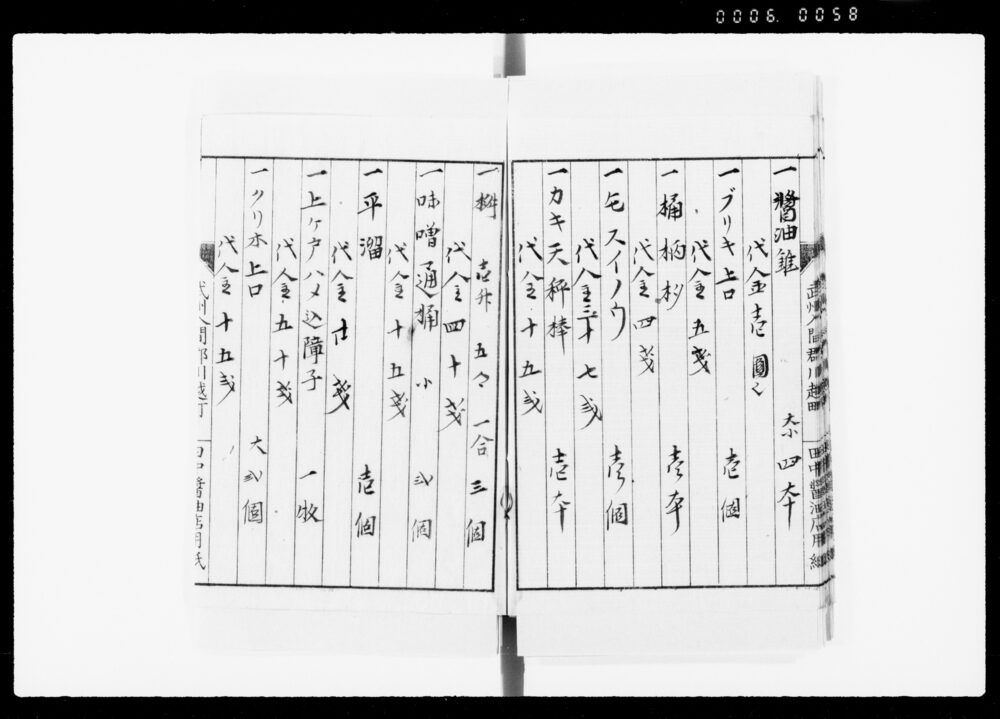 0006. 0058
一醤油錐 大小四本
代金壱圓也
一ブリキ上口 壱個
代金五戔
一桶柄杉 壱本
代金四戔
一毛スイノウ 壱個
代金三十七戔
一カキ天秤棒 壱本
代金十五戔
武州入間郡川越町 田中醤油店用紙
一桝 壱升 五々 一合 三個
代金四十戔
一味噌通桶 小 弐個
代金十五戔
一平溜 壱個
代金廿戔
一上ケ戸ハメ込障子 一枚
代金五十戔
一クリ木上口 大弐個
代金十五戔
武州入間郡川越町 田中醤油店用紙